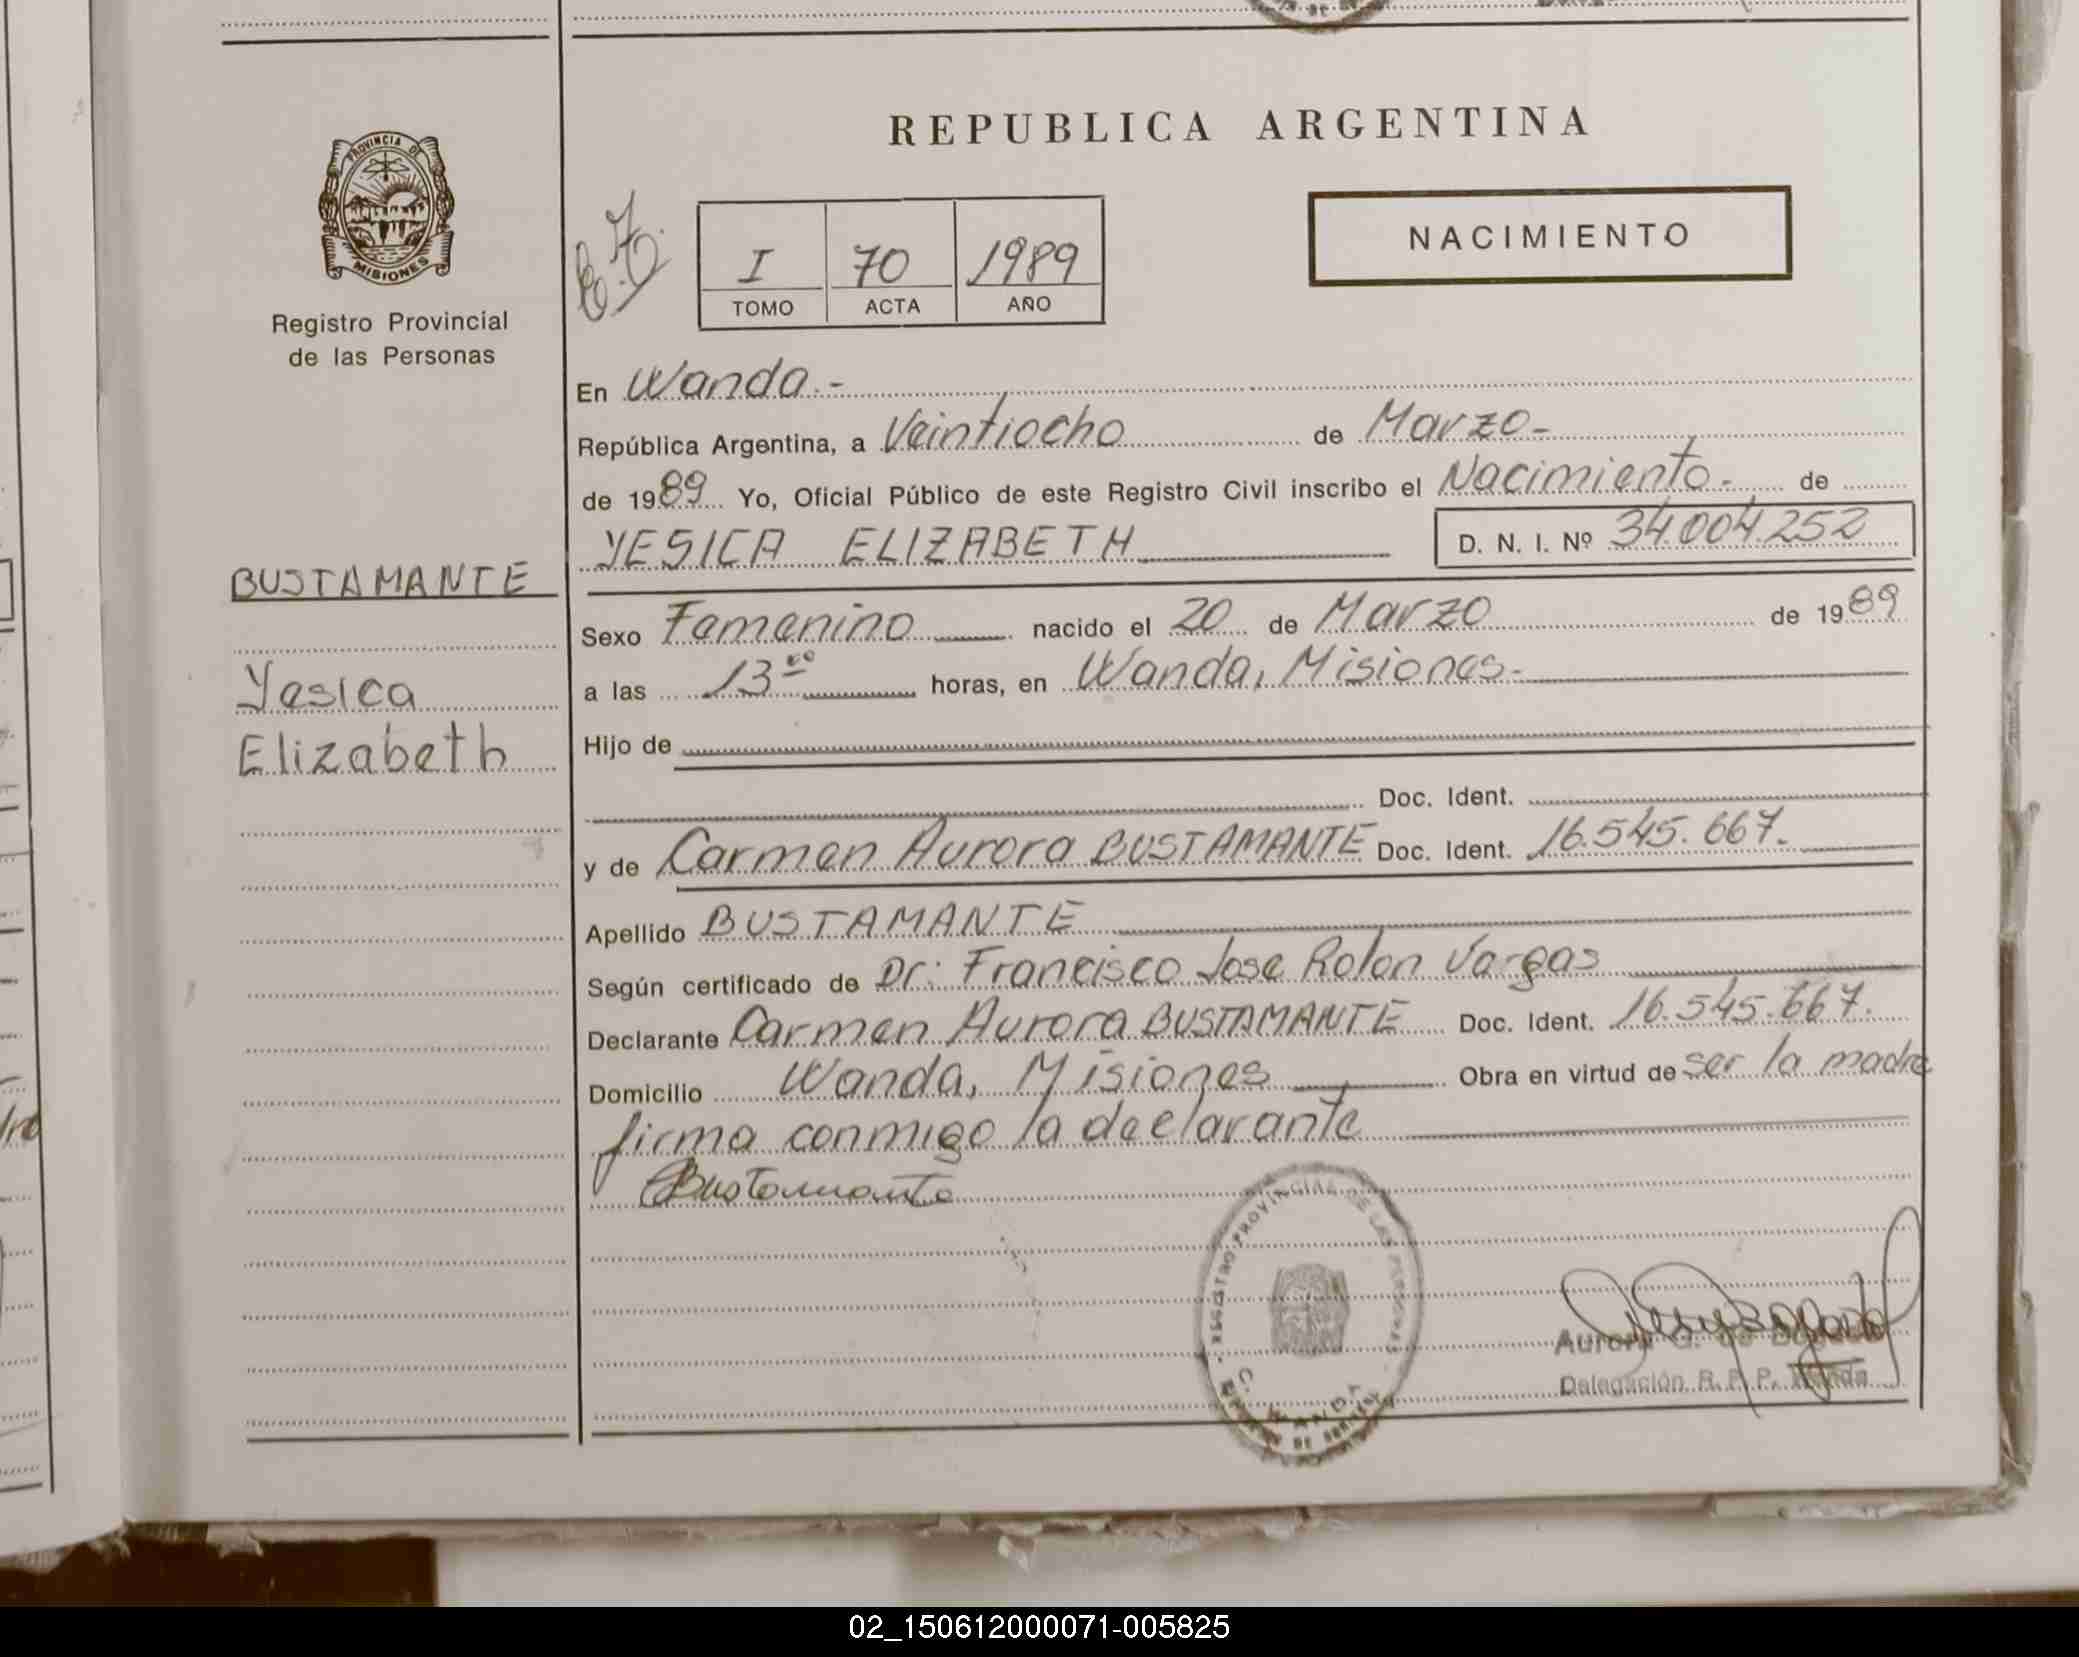 REPUBLICA ARGENTINA
PROVINCIA DE
MISIONES
Registro Provincial
de las Personas
I 70 1989
TOMO ACTA AÑO
NACIMIENTO
En Wanda.-
República Argentina, a Veintiocho de Marzo-
de 1989 Yo, Oficial Público de este Registro Civil inscribo el Nacimiento.- de
YESICA ELIZABETH D. N. I. Nº 34.004.252
BUSTAMANTE
Yesica
Elizabeth
Sexo Femenino nacido el 20 de Marzo de 1989
a las 13ºº horas, en Wanda, Misiones.-
Hijo de
Doc. Ident.
y de Carmen Aurora BUSTAMANTE Doc. Ident. 16.545.667.
Apellido BUSTAMANTE
Según certificado de Dr: Francisco Jose Rolon Vargas
Declarante Carmen Aurora BUSTAMANTE Doc. Ident. 16.545.667.
Domicilio Wanda, Misiones Obra en virtud de ser la madre
firma conmigo la declarante
Bustamante
REGISTRO PROVINCIAL DE LAS PERSONAS
WANDA
Aurora G. de
Delegación R. P. P. Wanda
02_150612000071-005825